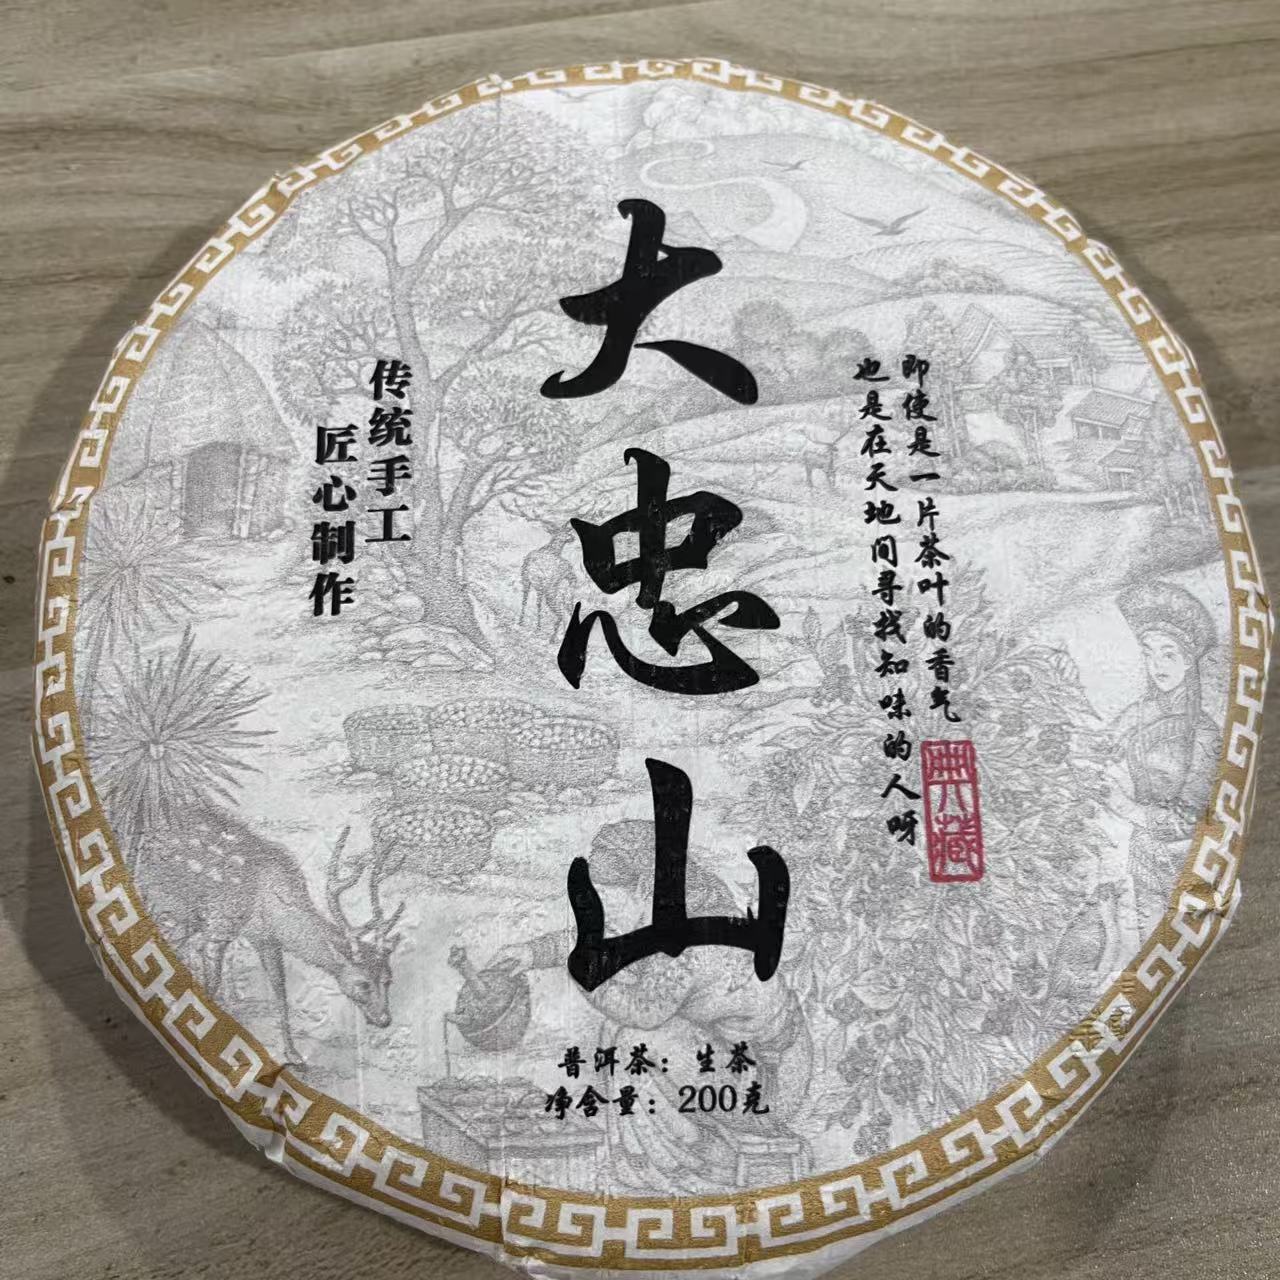 大忠山
即使是一片茶叶的香气
也是在天地间寻找知味的人呀
典藏
传统手工
匠心制作
普洱茶：生茶
净含量：200克